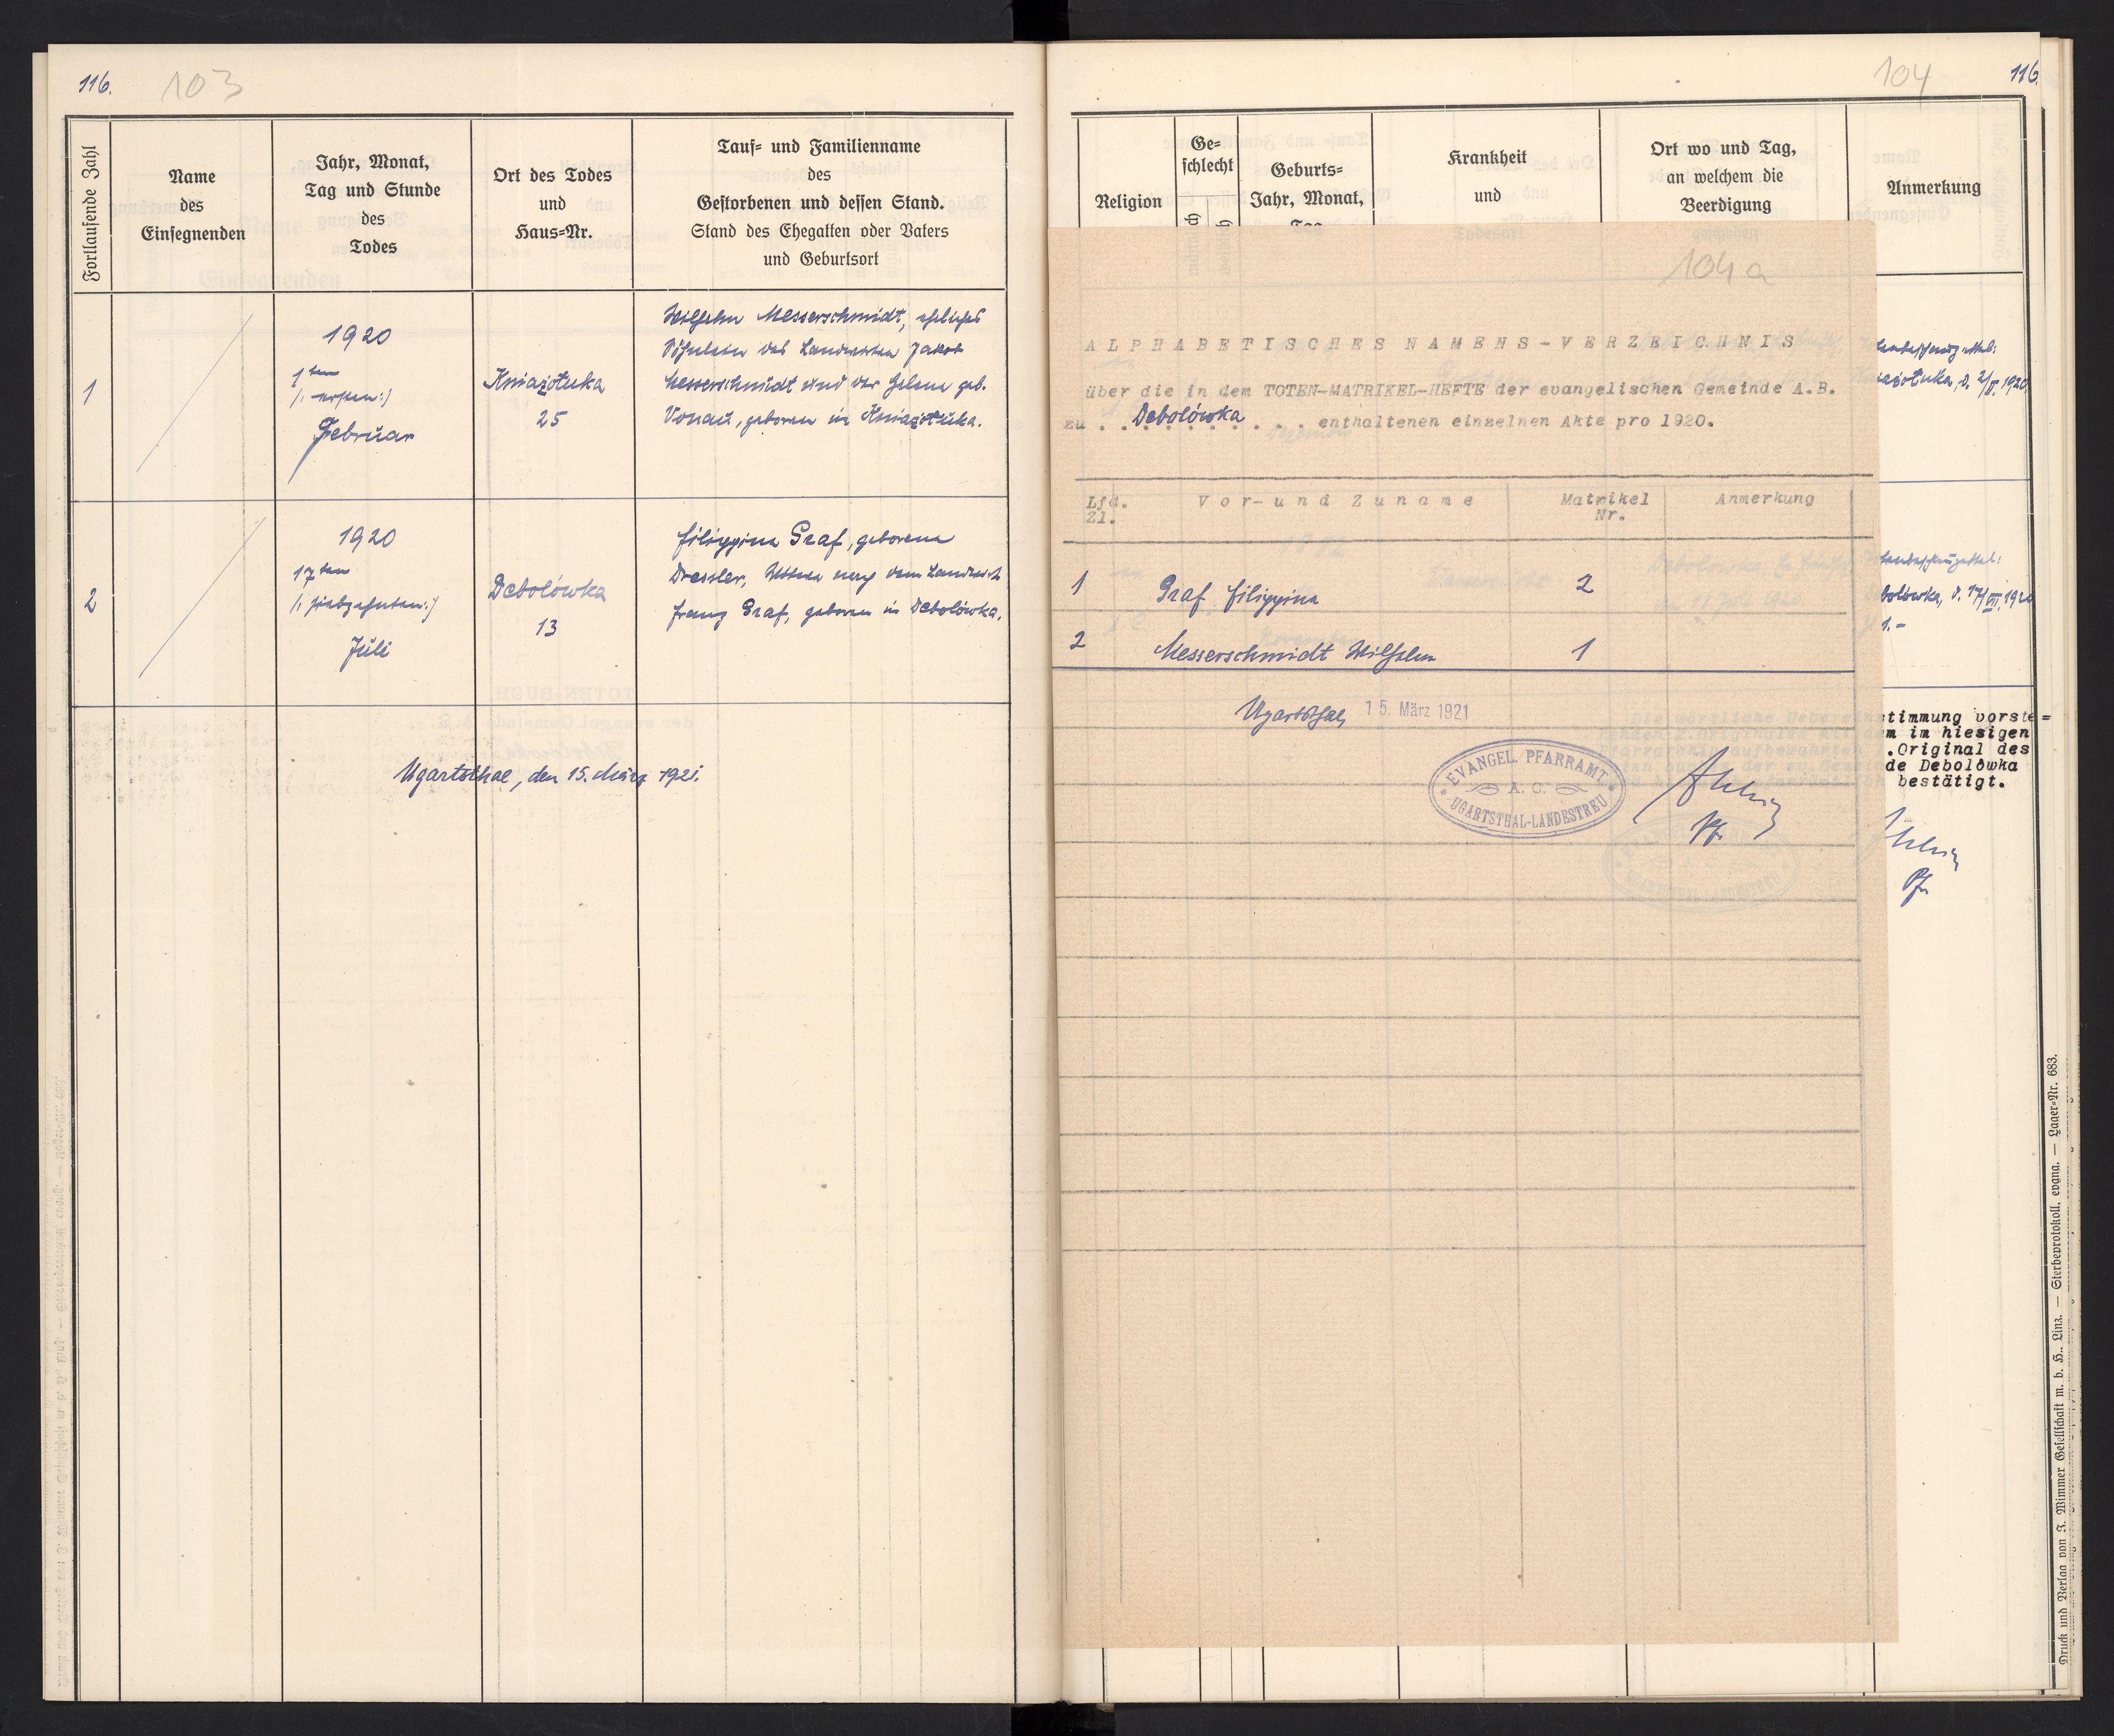 116.
103
Fortlaufende Zahl
Name
des
Einsegnenden
Jahr, Monat,
Tag und Stunde
des
Todes
Ort des Todes
und
Haus=Nr.
Tauf= und Familienname
des
Gestorbenen und dessen Stand.
Stand des Ehegatten oder Vaters
und Geburtsort
1
1920
1ten
/: ersten :/
Februar
Kniaźołuka
25
Wilhelm Messerschmidt, eheliches
Söhnlein des Landwirten Jakob
Messerschmidt und der Helena geb.
Vonau, geboren in Kniaźołuka.
2
1920
17ten
/: siebzehnten :/
Juli
Debolówka
13
Filippina Graf, geborene
Dressler, Witwe nach dem Landwirth
Franz Graf, geboren in Debolówka.
Ugartsthal, den 15. März 1921.
104
116.
Religion
Ge=
schlecht
Geburts=
Jahr, Monat,
Krankheit
und
Ort wo und Tag,
an welchem die
Beerdigung
Anmerkung
104a
ALPHABETISCHES NAMENS-VERZEICHNIS
über die in dem TOTEN-MATRIKEL-HEFTE der evangelischen Gemeinde A.B.
zu . Debolówka . . . . enthaltenen einzelnen Akte pro 1920.
Lfd.
Zl.
Vor- und Zuname
Matrikel
Nr.
Anmerkung
1 Graf Filippina 2
2 Messerschmidt Wilhelm 1
Ugartsthal, 15. März 1921
EVANGEL. PFARRAMT
A. C.
UGARTSTHAL-LANDESTREU
Pf.
2/II. 1920
17/VII. 1920
1.-
stimmung vorste=
m im hiesigen
.Original des
de Debolówka
bestätigt.
Pf.
Druck und Verlag von J. Wimmer Gesellschaft m. b. H., Linz. — Sterbeprotokoll. evang. — Lager=Nr. 683.